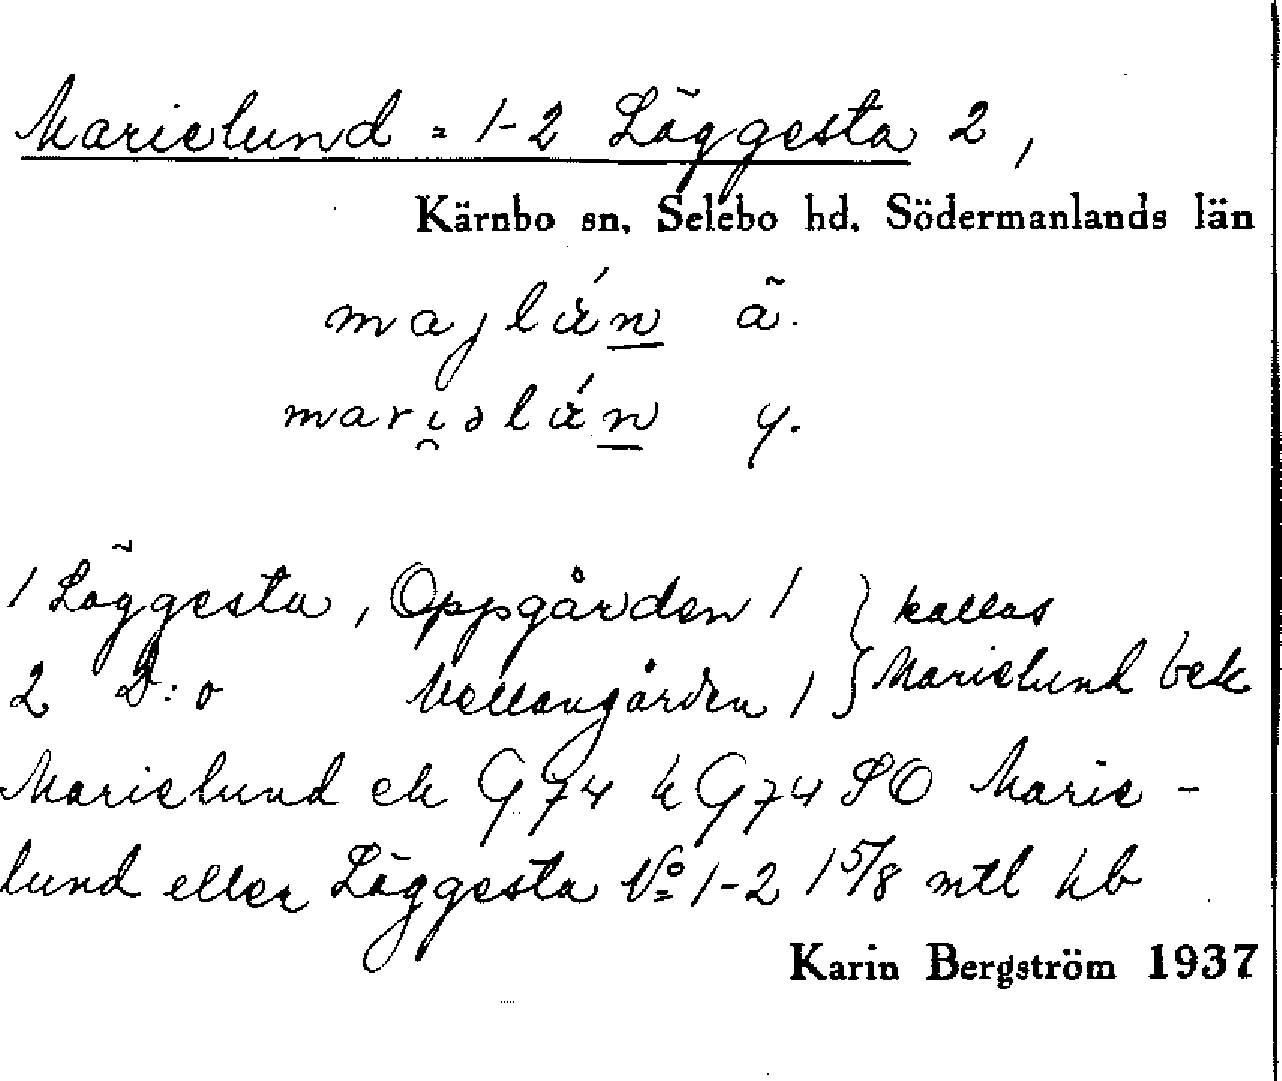 Marielund = 1-2 Läggesta 2,
Kärnbo sn. Selebo hd. Södermanlands län
majlún ä.
mariəlún y.
1 Läggesta, Oppgården 1 } kallas
2 D:o Mellangården 1 } Marielund bek
Marielund ek G74 k G74 SO Marie-
lund eller Läggesta No 1-2 1 5/8 mtl hb
Karin Bergström 1937